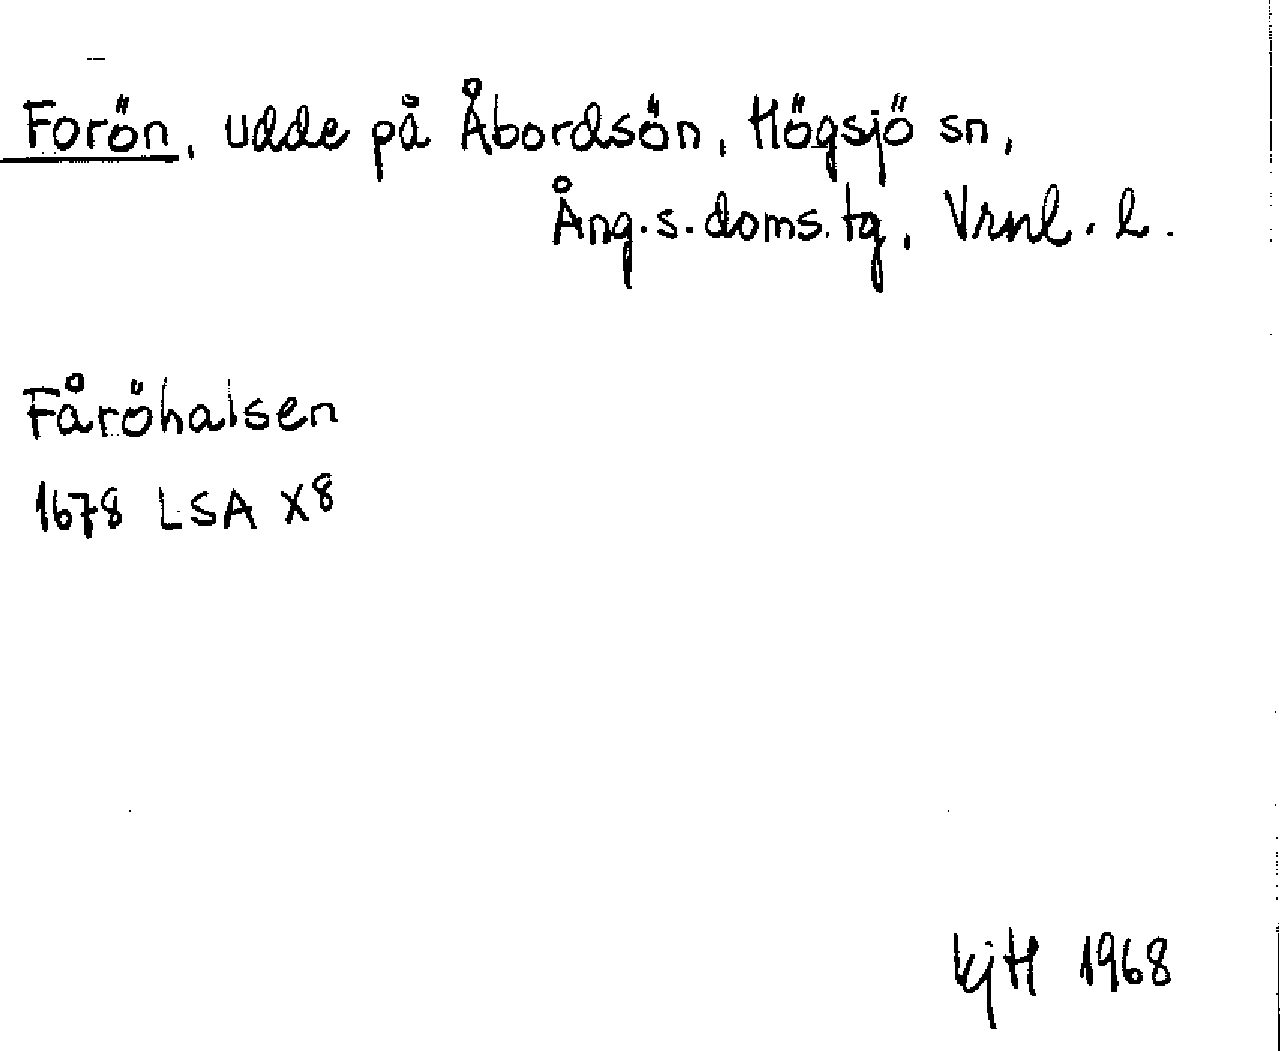 Forön, udde på Åbordsön, Högsjö sn,
Ång. s. doms. tg, Vrnl. l.
Fåröhalsen
1678 LSA X8
kjH 1968